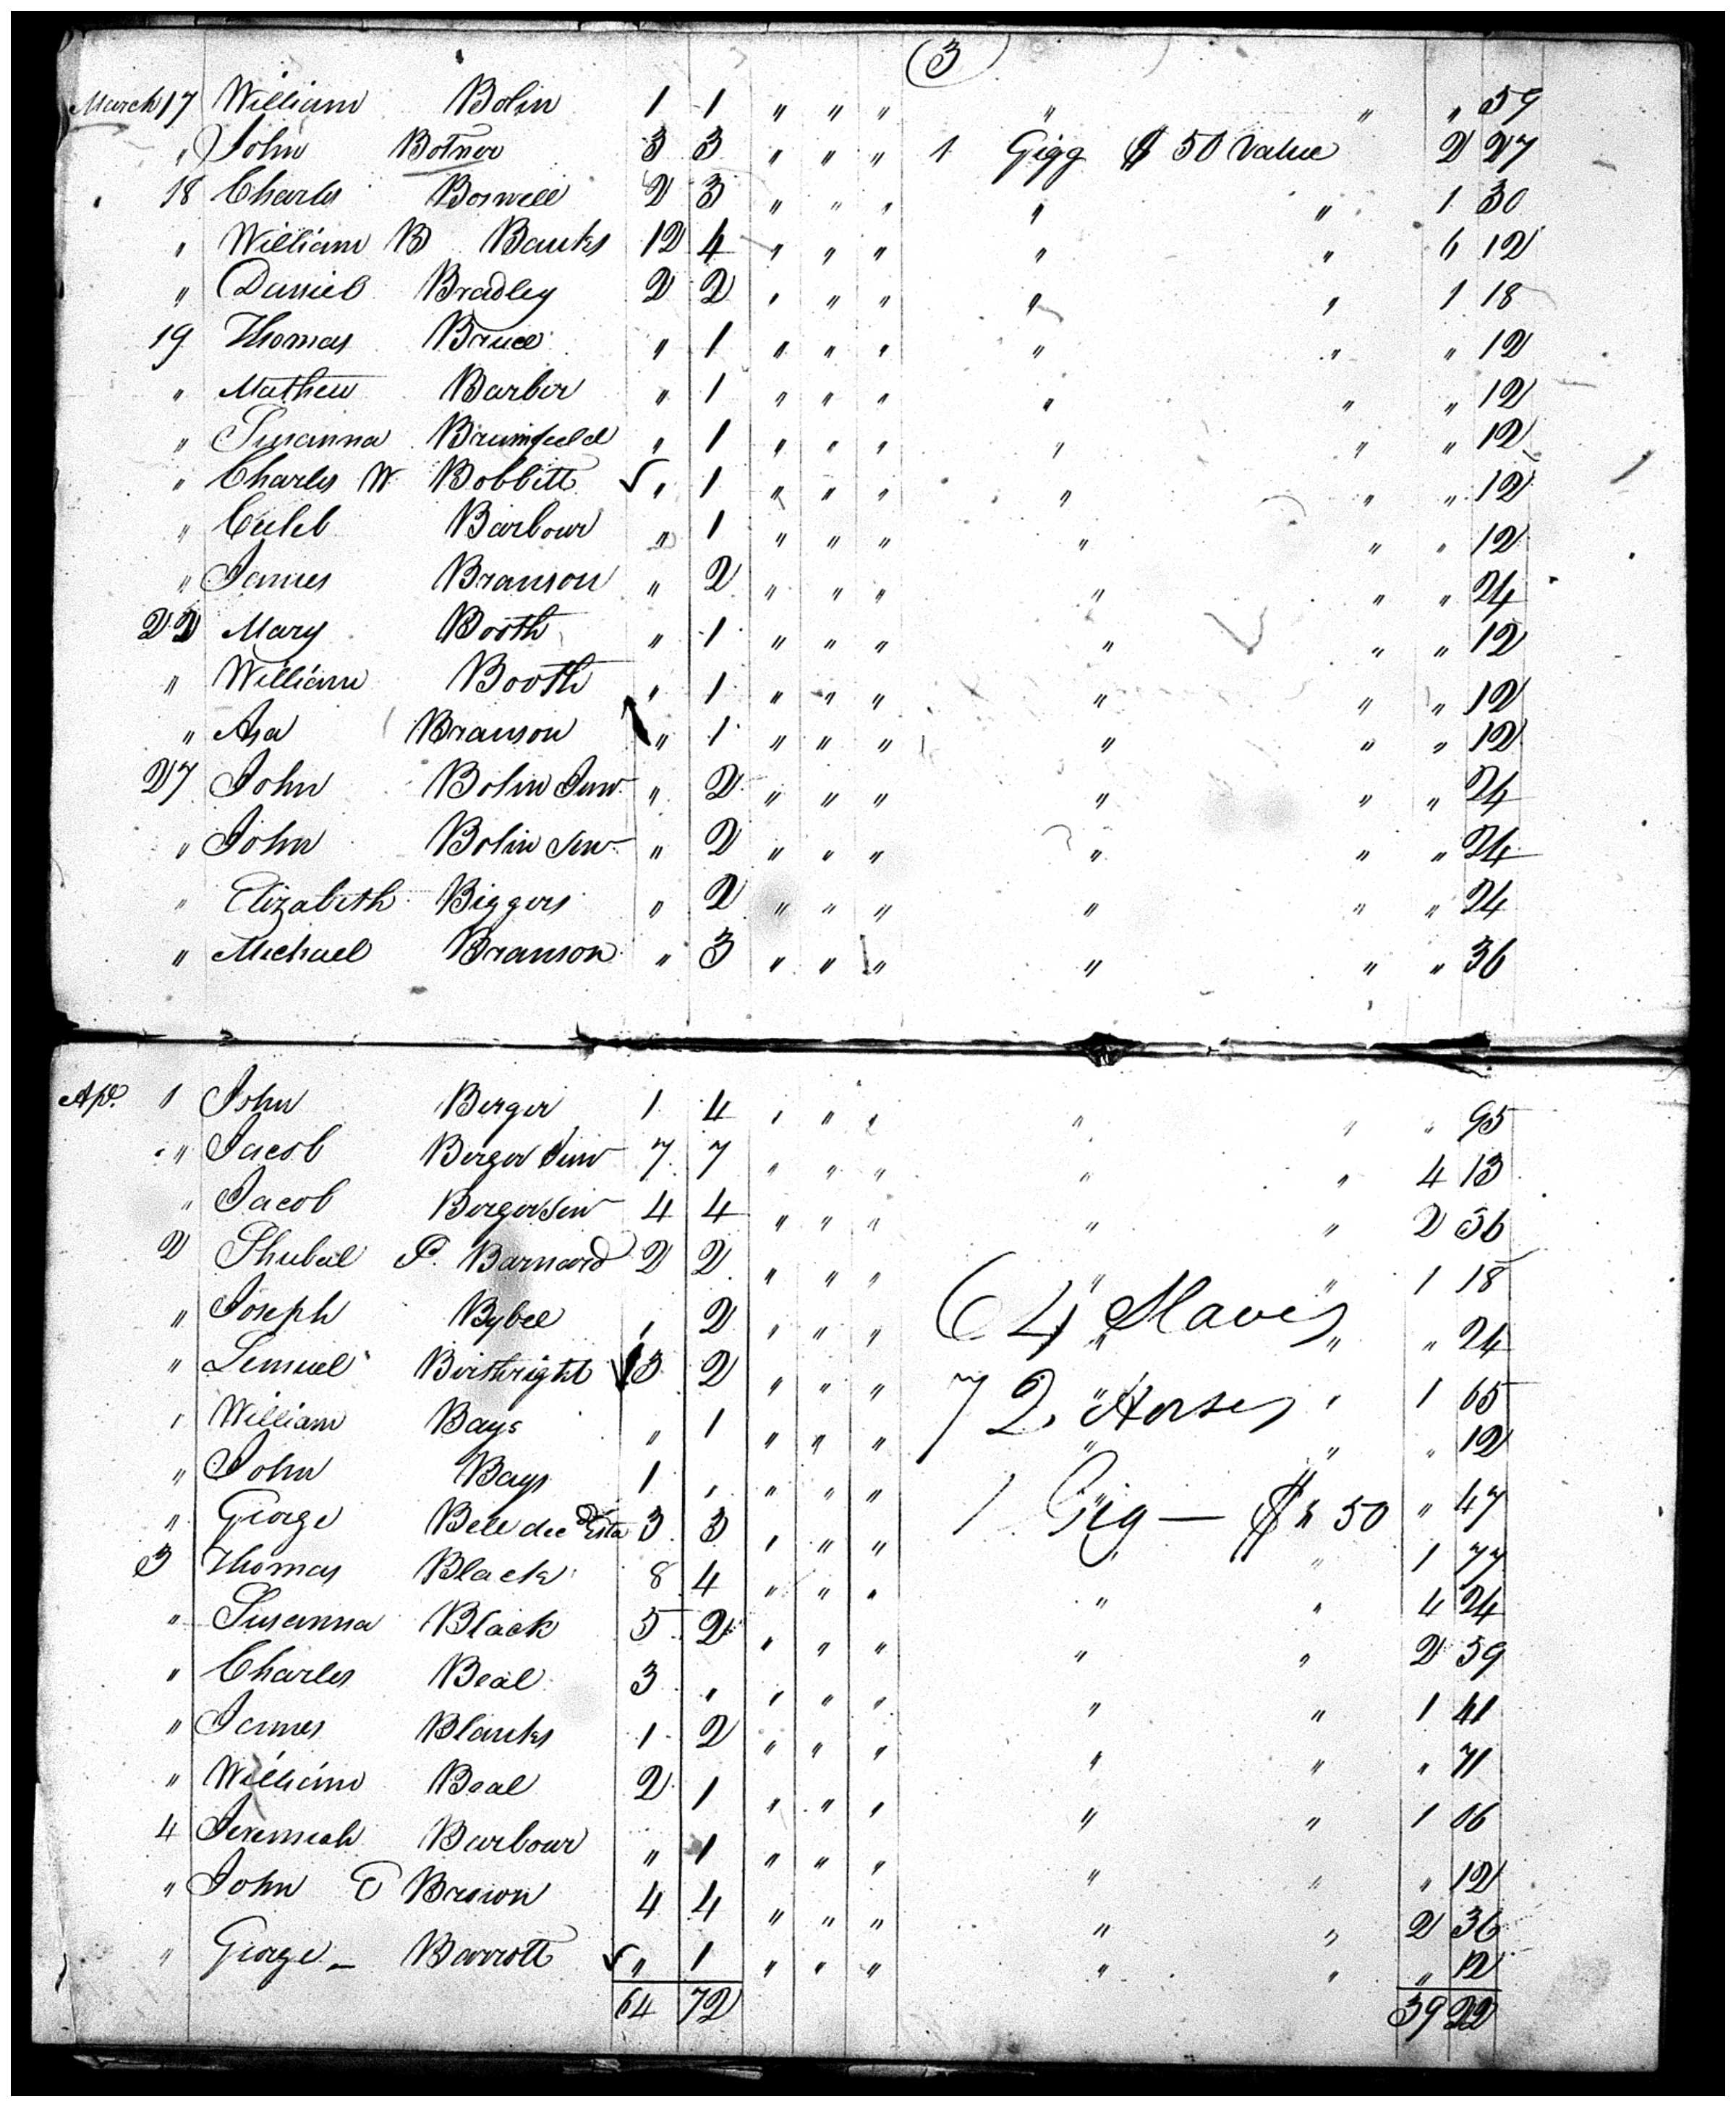 3
March 17 William Bolin 1 1 " " " " " " 59
" John Botner 3 3 " " " 1 Gigg $ 50 Value 2 27
18 Charles Boswell 2 3 " " " " " 1 30
" William B Banks 12 4 " " " " " 6 12
" Daniel Bradley 2 2 " " " " " 1 18
19 Thomas Bruce " 1 " " " " " " 12
" Mathew Barber " 1 " " " " " " 12
" Susanna Brumfield " 1 " " " " " " 12
" Charles W Bobbitt ✓ " 1 " " " " " " 12
" Caleb Barbour " 1 " " " " " " 12
" James Branson " 2 " " " " " " 24
22 Mary Booth " 1 " " " " " " 12
" William Booth " 1 " " " " " " 12
" Asa Branson " 1 " " " " " " 12
27 John Bolin Junr " 2 " " " " " " 24
" John Bolin Senr " 2 " " " " " " 24
" Elizabeth Biggers " 2 " " " " " " 24
" Michael Branson " 3 " " " " " " 36
Apl. 1 John Berger 1 4 " " " " " " 95
" Jacob Berger Junr 7 7 " " " " " 4 13
" Jacob Berger Senr 4 4 " " " " " 2 36
2 Shubal P. Barnard 2 2 " " " " " 1 18
" Joseph Bybee " 2 " " " 64 Slaves " " 24
" Lemuel Birthright ✓ 3 2 " " " 72 Horses " 1 65
" William Bays " 1 " " " " " " 12
" John Bays 1 " " " " 1 Gig — $ 50 " 47
" George Bell decd Esta 3 3 " " " " " 1 77
3 Thomas Black 8 4 " " " " " 4 24
" Susanna Black 5 2 " " " " " 2 59
" Charles Beal 3 " " " " " " 1 41
" James Blanks 1 2 " " " " " " 71
" William Beal 2 1 " " " " " 1 06
4 Jeremiah Barbour " 1 " " " " " " 12
" John E Brown 4 4 " " " " " 2 36
" George Barrott ✓ " 1 " " " " " " 12
64 72 39 22